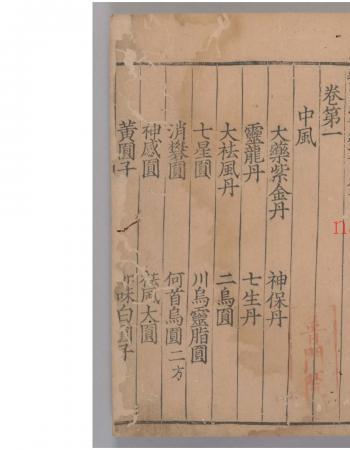 卷第一
中風
大藥紫金丹 神保丹
靈龍丹 七生丹
大祛風丹 二烏圓
七星圓 川烏靈脂圓
消礬圓 何首烏圓二方
神感圓 祛風太圓
黃圓子 味白圓子
n